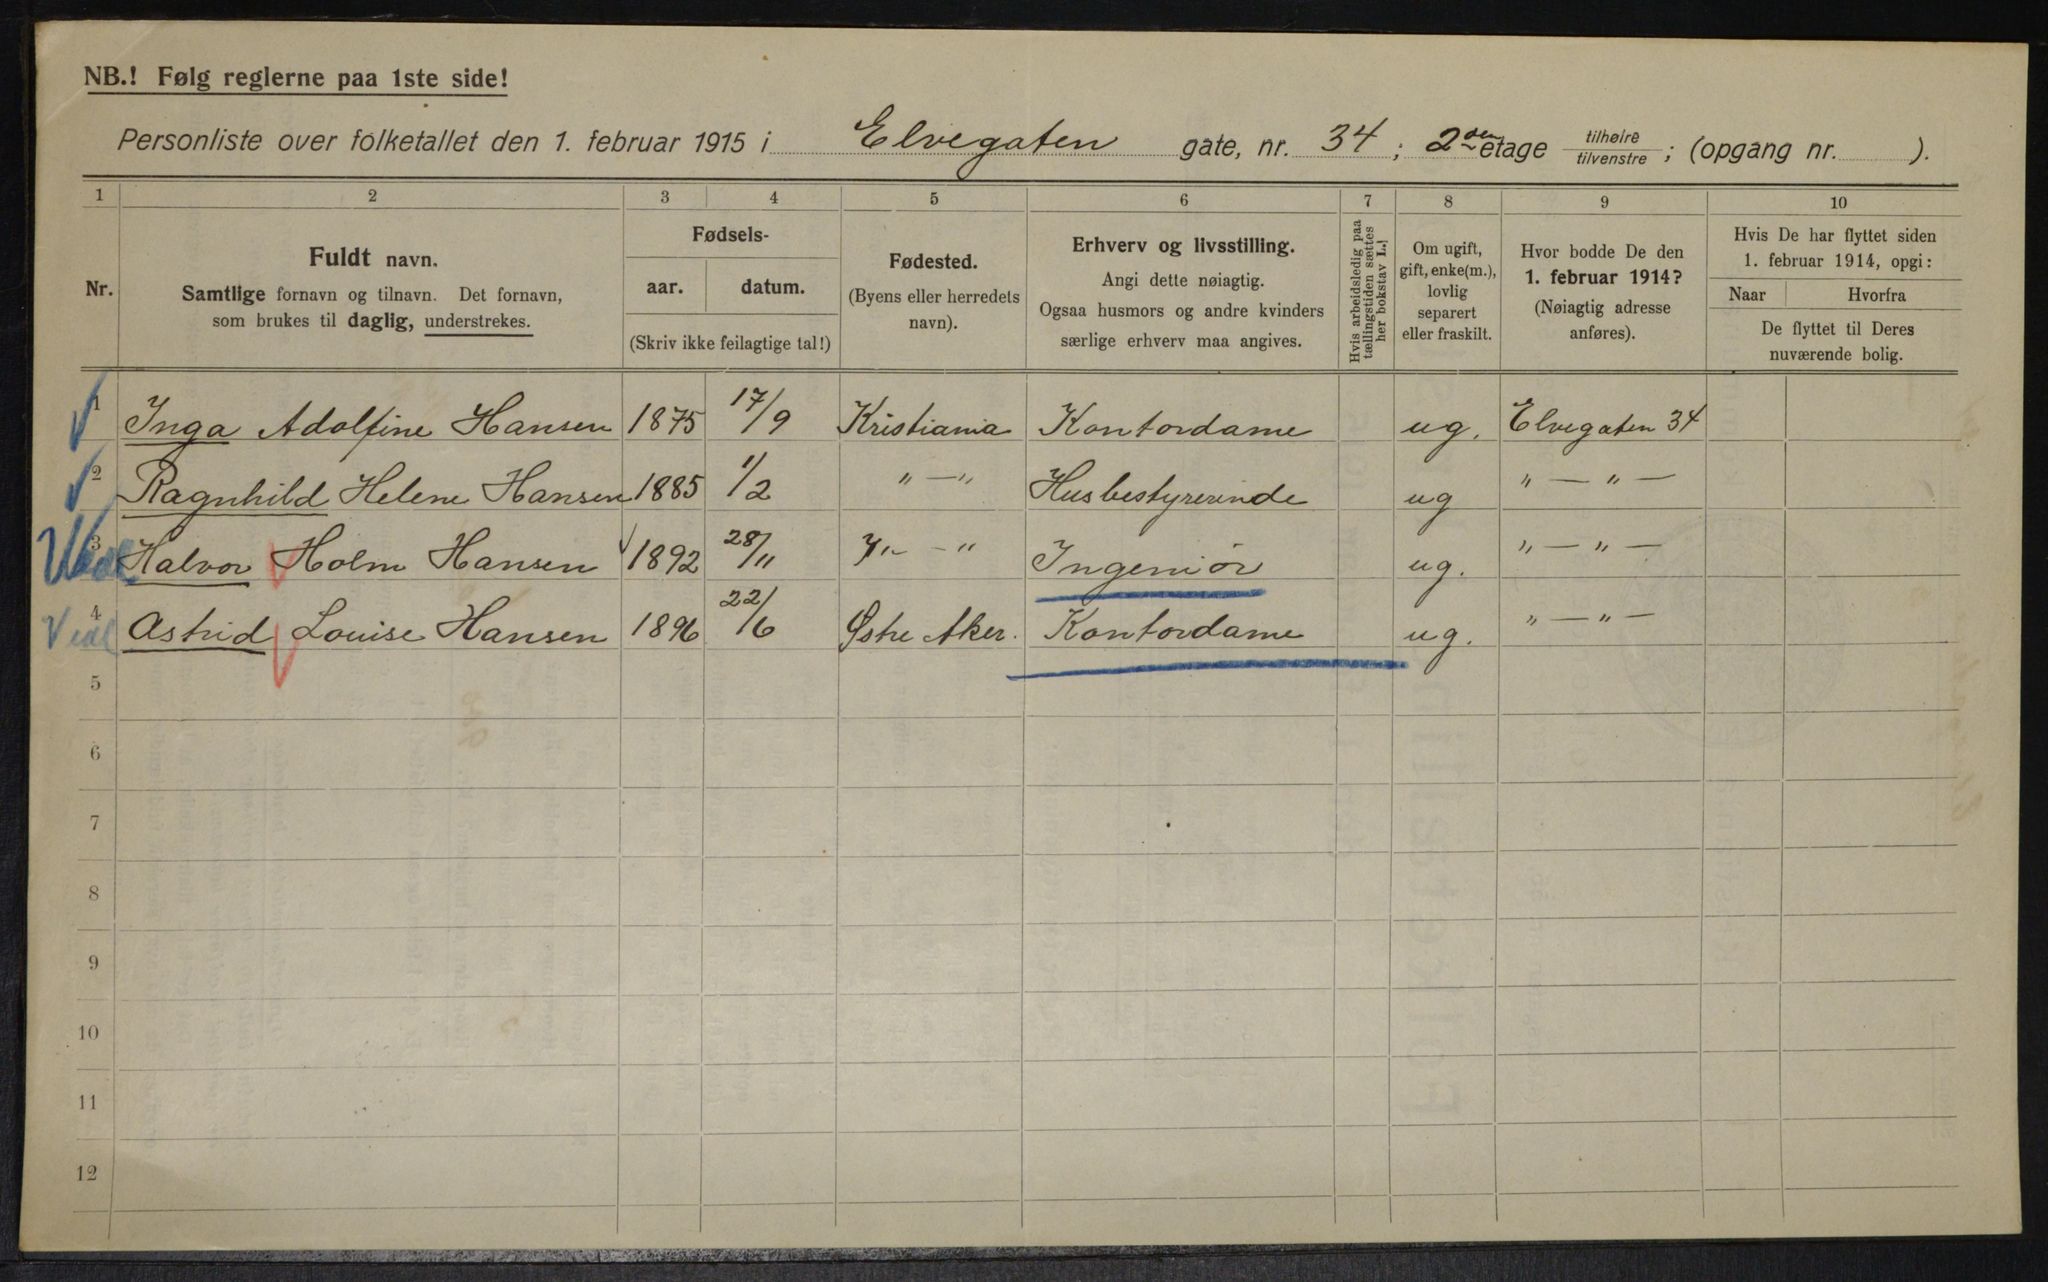 NB.! Følg reglerne paa 1ste side!
Personliste over folketallet den 1. februar 1915 i Elvegaten gate, nr. 34; 2den etage tilhøire tilvenstre; (opgang nr. ).
1 2 3 4 5 6 7 8 9 10
Nr.
Fuldt navn.
Samtlige fornavn og tilnavn. Det fornavn,
som brukes til daglig, understrekes.
Fødsels-
aar. datum.
(Skriv ikke feilagtige tal!)
Fødested.
(Byens eller herredets
navn).
Erhverv og livsstilling.
Angi dette nøiagtig.
Ogsaa husmors og andre kvinders
særlige erhverv maa angives.
Hvis arbeidsledig paa
tællingstiden sættes
her bokstav L.
Om ugift,
gift, enke(m.),
lovlig
separert
eller fraskilt.
Hvor bodde De den
1. februar 1914?
(Nøiagtig adresse
anføres).
Hvis De har flyttet siden
1. februar 1914, opgi:
Naar Hvorfra
De flyttet til Deres
nuværende bolig.
1 Inga Adolfine Hansen 1875 17/9 Kristiania Kontordame ug. Elvegaten 34
2 Ragnhild Helene Hansen 1885 1/2 „ — „ Husbestyrerinde ug „ — „ —
3 Halvor Holm Hansen 1892 28/11 „ — „ Ingeniør ug. „ — „ —
4 Astrid Louise Hansen 1896 22/6 Østre Aker. Kontordame ug. „ — „ —
5
6
7
8
9
10
11
12